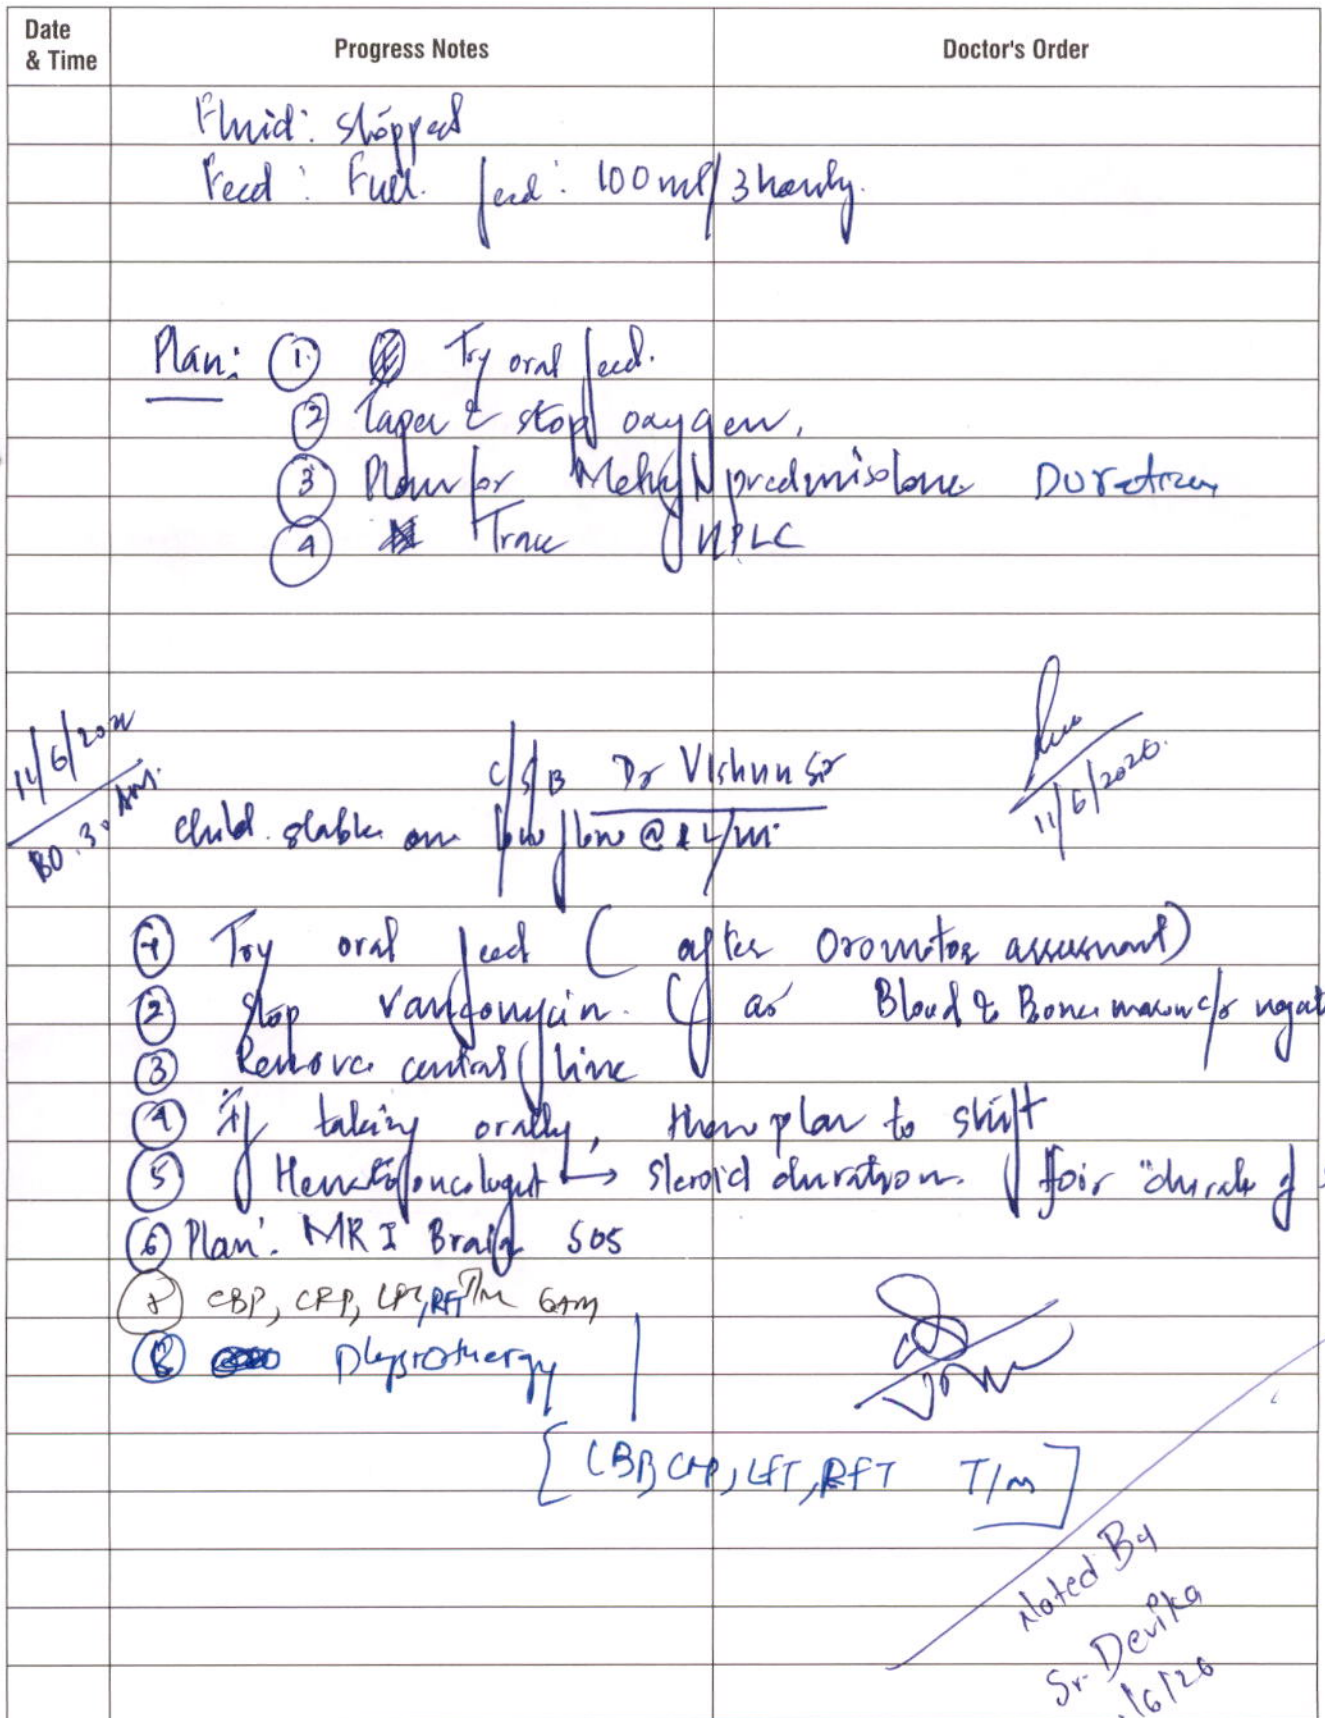 Date & Time Progress Notes Doctor's Order
Fluid: stopped
Feed: Full feed: 100 ml/3 hourly.
Plan: ① Try oral feed.
② Taper & stop oxygen.
③ Plan for Methyl prednisolone Duration
④ Trace HPLC
11/6/2020
.30 Am. C/S/B Dr Vishnu Sir
11/6/2020.
child stable on low flow @ 1 L/mi
① Try oral feed (after Oromotor assessment)
② Stop Vancomycin. (as Blood & Bone marrow c/s negat
③ Remove central line
④ If taking orally, then plan to shift
⑤ Hemato oncologist → steroid duration. for
⑥ Plan: MRI Brain SOS
CBP, CRP, LFT, RFT T/m 6am
⑧ physiothergy
[CBP, CRP, LFT, RFT T/m]
Noted By
Sr. Devika
/6/20